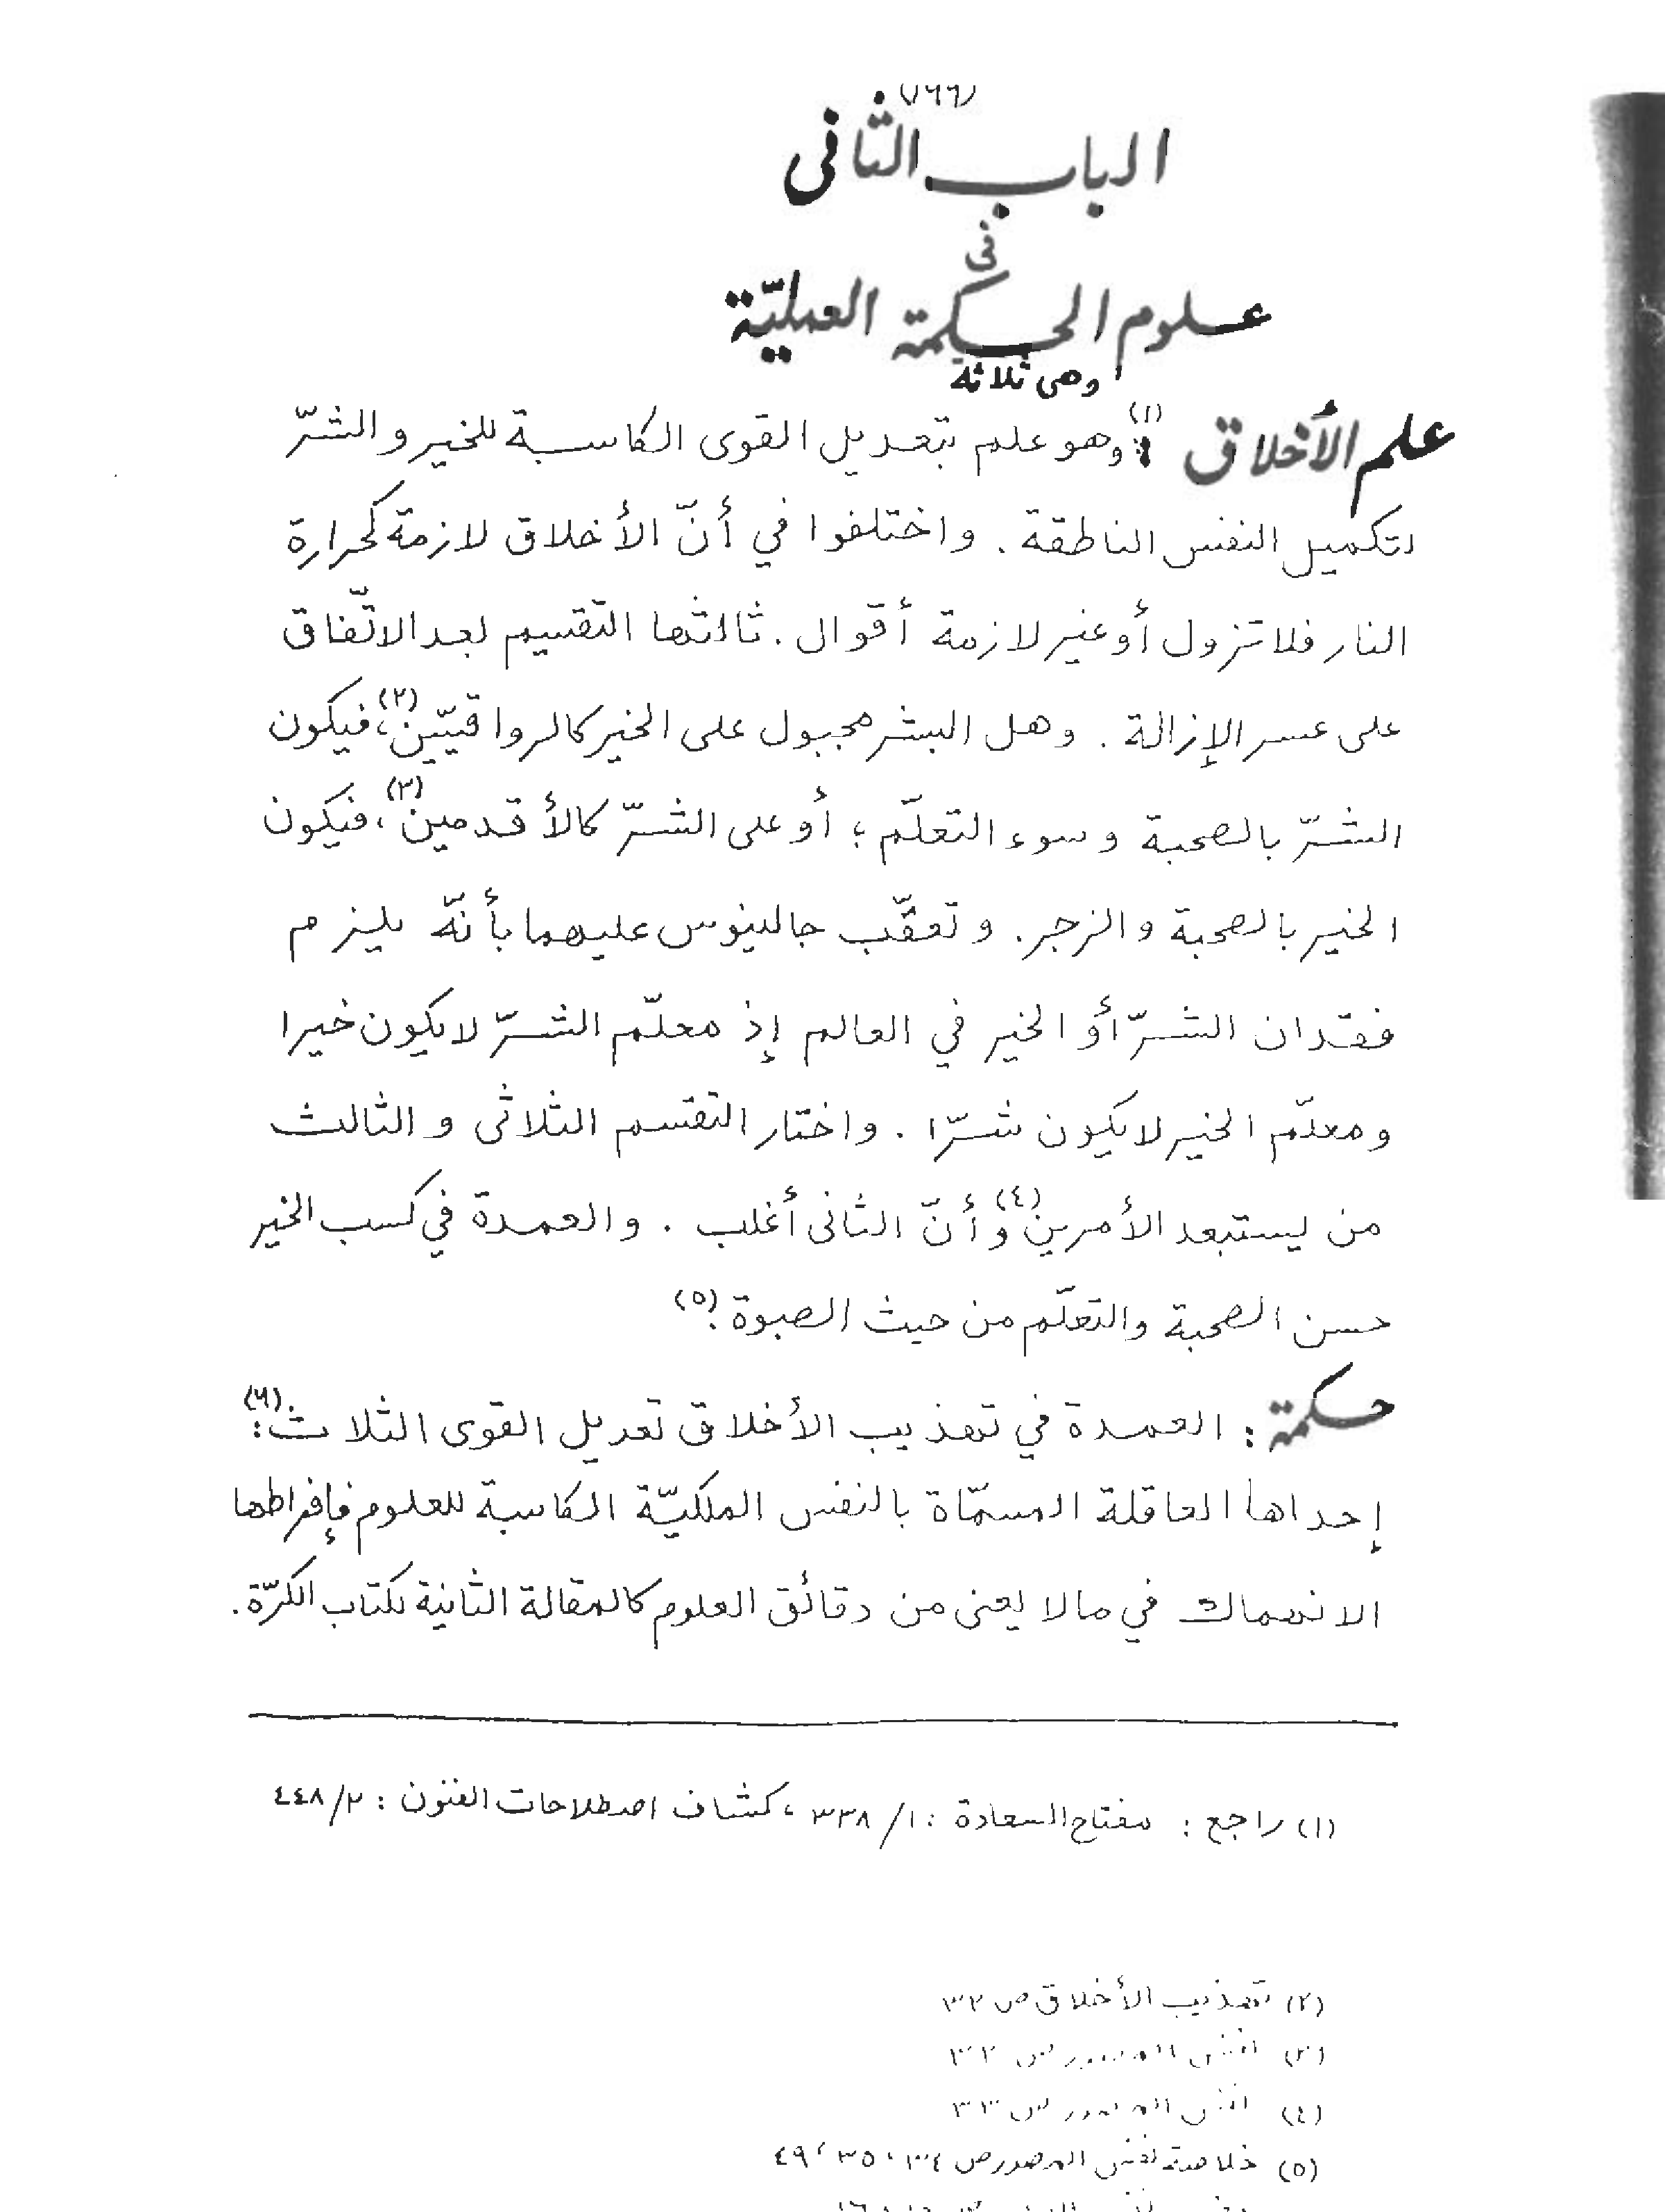 (١٦٦)
الباب الثانى
فى
علوم الحكمة العمليّة
وهى ثلاثة
علم الأخلاق (١): وهو علم بتعديل القوى الكاسبة للخير والشرّ
لتكميل النفس الناطقة. واختلفوا في أنّ الأخلاق لازمة كحرارة
النار فلا تزول أو غير لازمة أقوال. ثالثها التقسيم بعد الاتّفاق
على عسر الإزالة. وهل البشر مجبول على الخير كالرواقيّين(٢)، فيكون
الشرّ بالصحبة وسوء التعلّم؛ أو على الشرّ كالأقدمين(٣)، فيكون
الخير بالصحبة والزجر. وتعقّب جالينوس عليهما بأنّه يلزم
فقدان الشرّ أو الخير في العالم إذ معلّم الشرّ لا يكون خيرا
ومعلّم الخير لا يكون شرّا. واختار التقسم الثلاثى والثالث
من يستبعد الأمرين(٤) وأنّ الثانى أغلب. والعمدة في كسب الخير
حسن الصحبة والتعلّم من حيث الصبوة.(٥)
حكمة: العمدة في تهذيب الأخلاق تعديل القوى الثلاث(٦):
إحداها العاقلة المسمّاة بالنفس الملكيّة الكاسبة للعلوم فإفراطها
الانهماك في مالا يعنى من دقائق العلوم كالمقالة الثانية لكتاب الكرّة.
(١) راجع: مفتاح السعادة: ١/ ٣٣٨، كشاف اصطلاحات الفنون: ٢/ ٤٤٨
(٢) تهذيب الأخلاق ص ٣٢
(٣) نفس المصدر ص ٣٢
(٤) نفس المصدر ص ٣٣
(٥) خلاصة نفس المصدر ص ٣٤، ٣٥، ٤٩